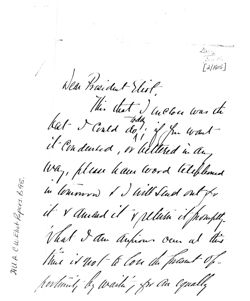 [2/1905]
Dear President Eliot,
This that I inclose was the
best I could do today; if you want
it condensed, or altered in any
way, please have word telephoned
in tomorrow & I will send out for
it & amend it & return it promptly.
What I am anxious over at this
time is not to lose the present op-
portunity by waiting, for can equally
HUA C.W. Eliot Papers